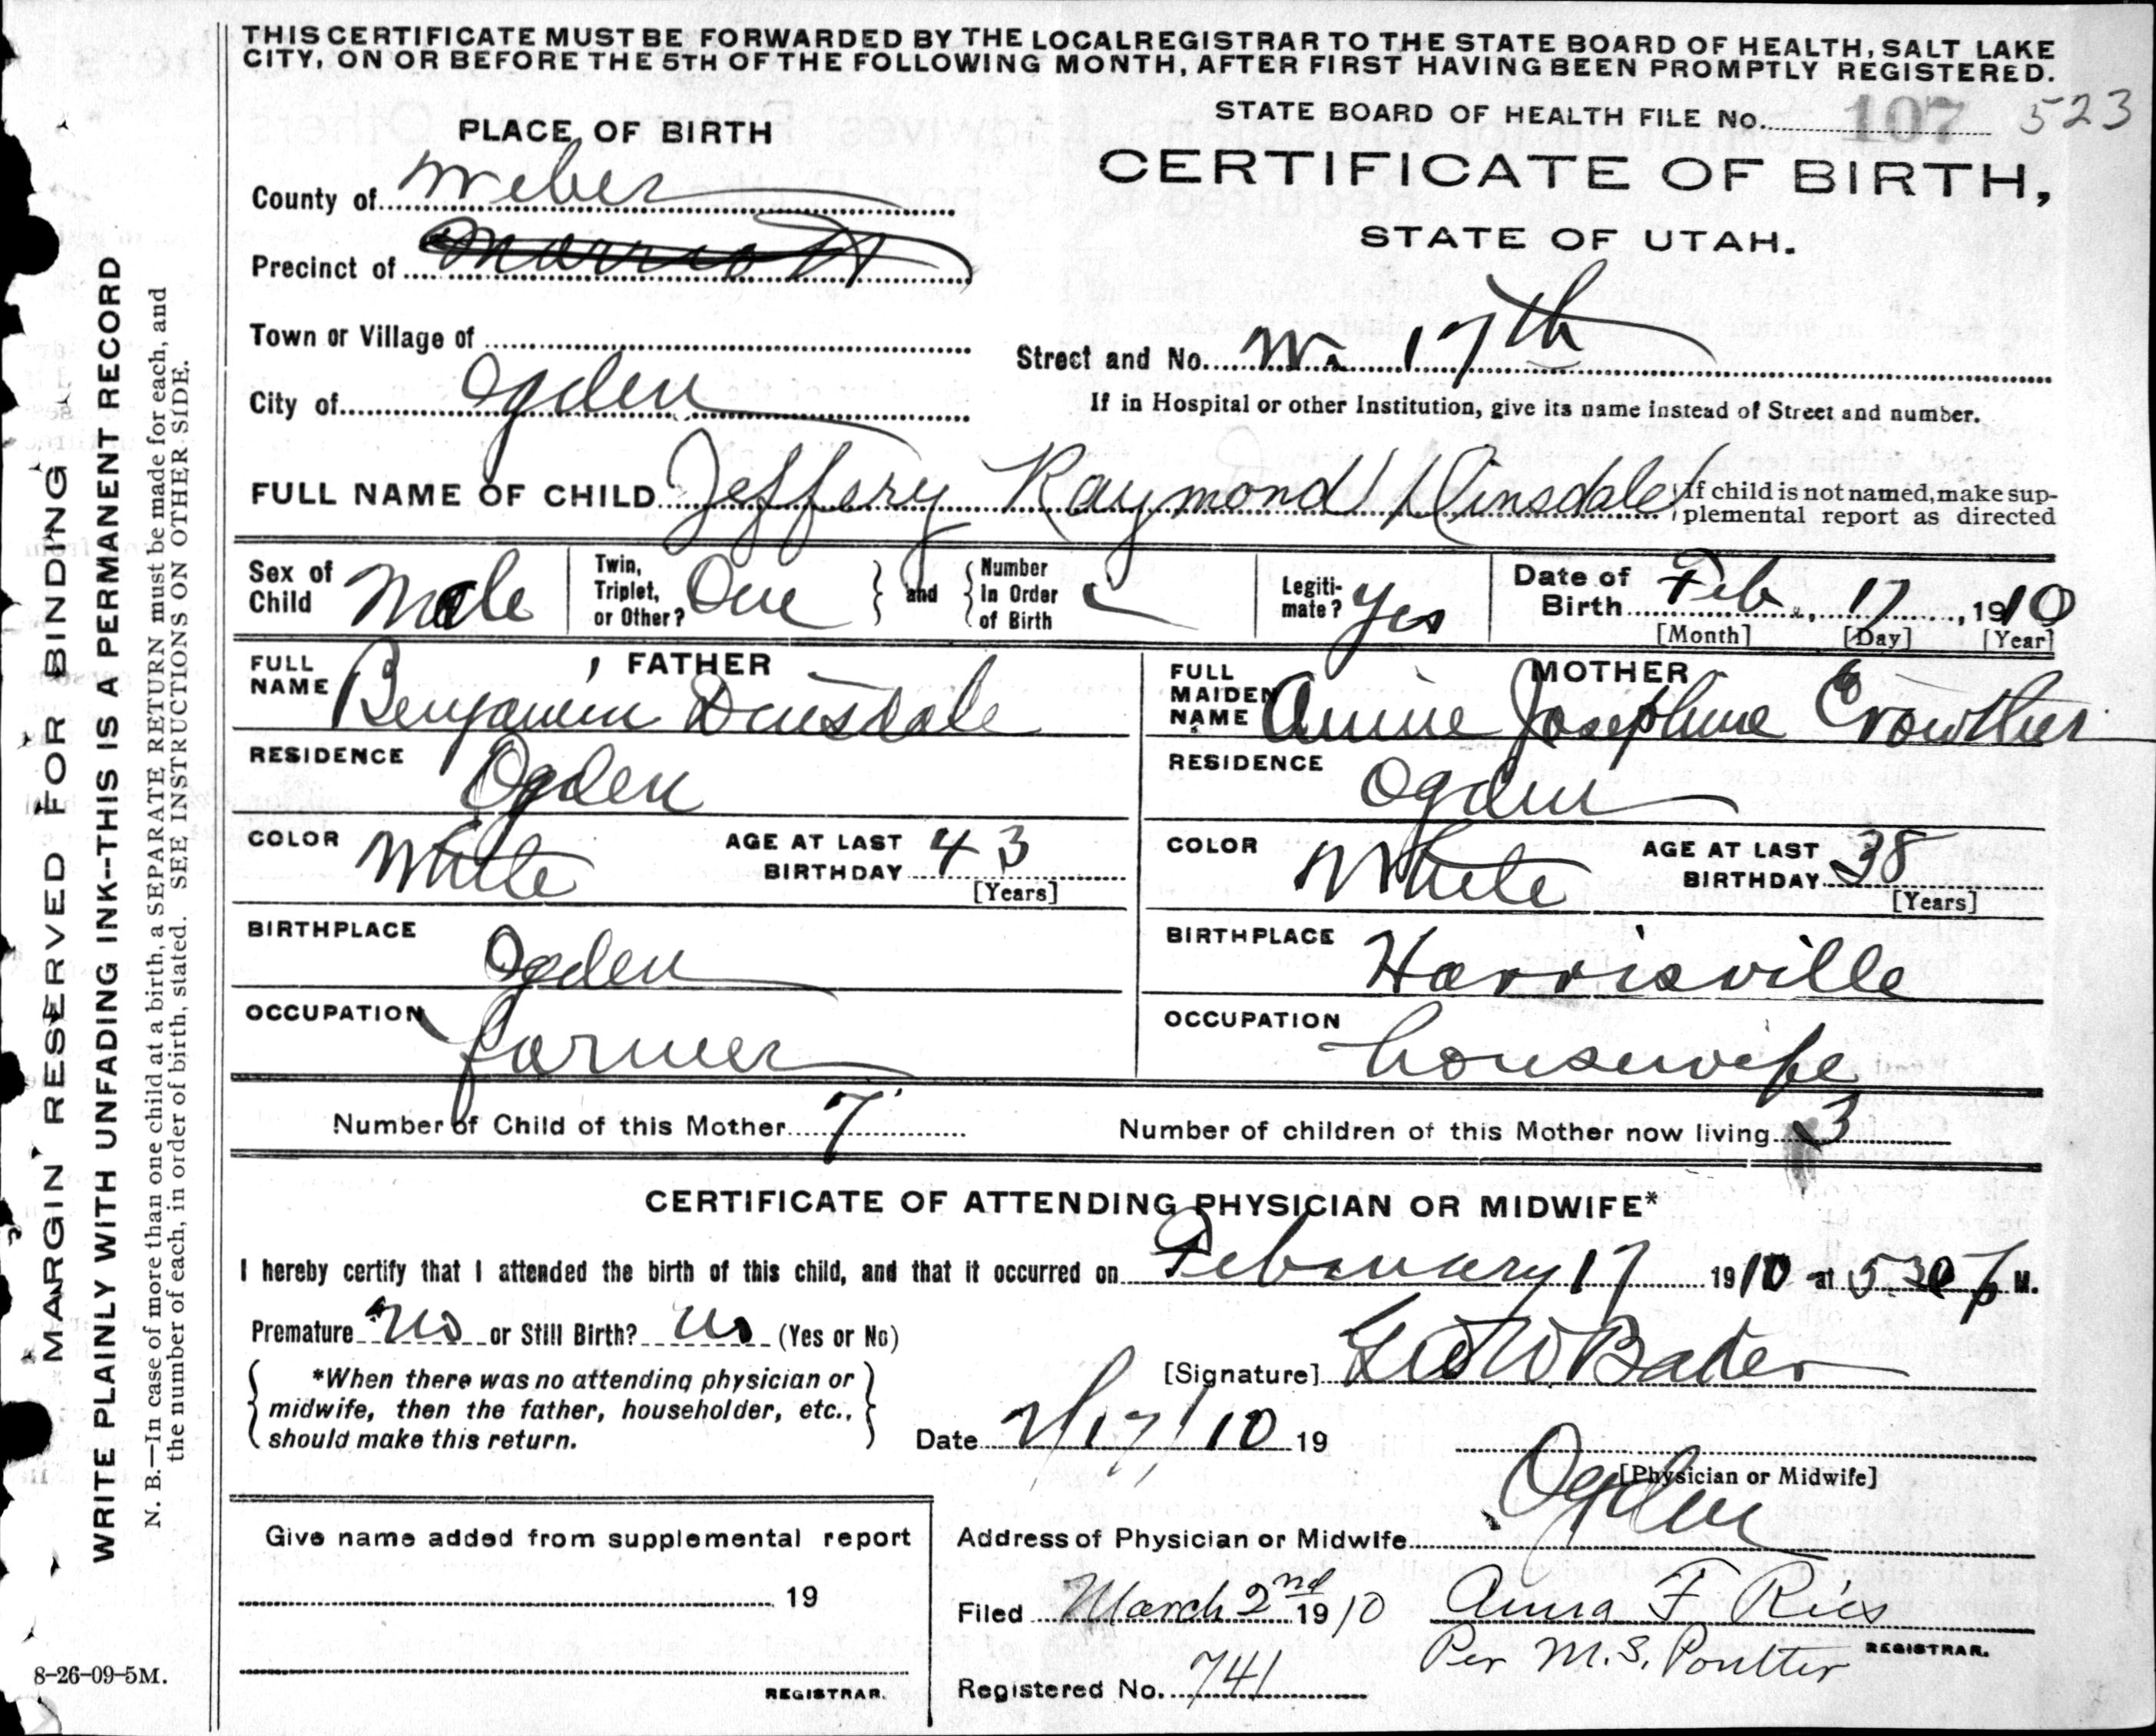 THIS CERTIFICATE MUST BE FORWARDED BY THE LOCAL REGISTRAR TO THE STATE BOARD OF HEALTH, SALT LAKE
CITY, ON OR BEFORE THE 5TH OF THE FOLLOWING MONTH, AFTER FIRST HAVING BEEN PROMPTLY REGISTERED.
STATE BOARD OF HEALTH FILE No. 107 523
PLACE OF BIRTH
CERTIFICATE OF BIRTH,
STATE OF UTAH.
County of Weber
Precinct of Marriott
Town or Village of
Street and No. W. 17th
City of Ogden
If in Hospital or other Institution, give its name instead of Street and number.
FULL NAME OF CHILD Jeffery Raymond Dinsdale
If child is not named, make sup-
plemental report as directed
Sex of Child Male
Twin, Triplet, or Other? One and Number In Order of Birth
Legiti-mate? Yes
Date of Birth Feb, 17, 1910
[Month] [Day] [Year]
FATHER
FULL NAME Benjamin Dinsdale
RESIDENCE Ogden
COLOR White AGE AT LAST BIRTHDAY 43 [Years]
BIRTHPLACE Ogden
OCCUPATION farmer
MOTHER
FULL MAIDEN NAME Annie Josephine Crowther
RESIDENCE Ogden
COLOR White AGE AT LAST BIRTHDAY 38 [Years]
BIRTHPLACE Harrisville
OCCUPATION housewife
Number of Child of this Mother 7 Number of children of this Mother now living 3
CERTIFICATE OF ATTENDING PHYSICIAN OR MIDWIFE*
I hereby certify that I attended the birth of this child, and that it occurred on February 17 1910 at 530 P M.
Premature No or Still Birth? No (Yes or No)
*When there was no attending physician or
midwife, then the father, householder, etc.,
should make this return.
[Signature] Geo W Baker
Date 2/17/10 19
[Physician or Midwife]
Address of Physician or Midwife Ogden
Give name added from supplemental report
19
REGISTRAR.
Filed March 2nd 1910 Anna F Ries
Per M.S. Poulter REGISTRAR.
Registered No. 741
MARGIN RESERVED FOR BINDING
WRITE PLAINLY WITH UNFADING INK--THIS IS A PERMANENT RECORD
N. B.—In case of more than one child at a birth, a SEPARATE RETURN must be made for each, and
the number of each, in order of birth, stated. SEE INSTRUCTIONS ON OTHER SIDE.
8-26-09-5M.